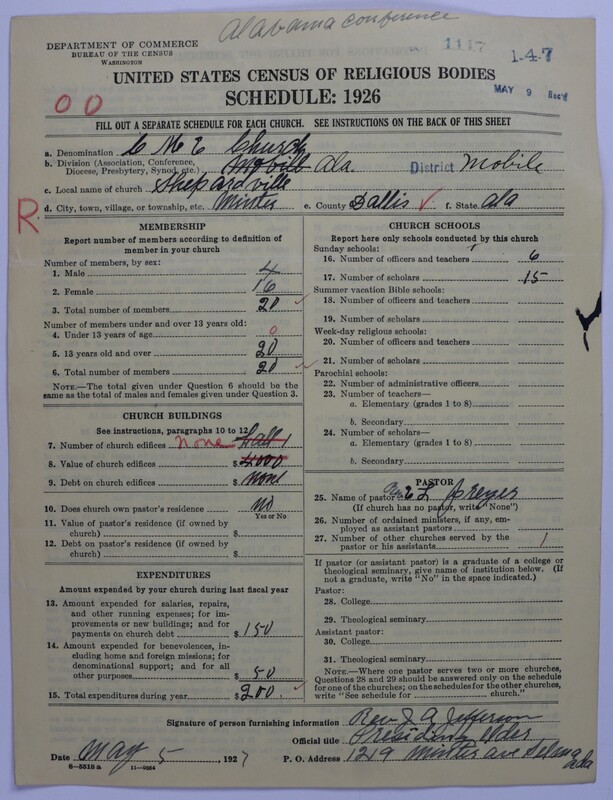 Alabama conference
DEPARTMENT OF COMMERCE
BUREAU OF THE CENSUS
WASHINGTON
1117
1-47
MAY 9 Rec'd
UNITED STATES CENSUS OF RELIGIOUS BODIES
SCHEDULE: 1926
00
FILL OUT A SEPARATE SCHEDULE FOR EACH CHURCH. SEE INSTRUCTIONS ON THE BACK OF THIS SHEET
a. Denomination C M E Church
b. Division (Association, Conference, Diocese, Presbytery, Synod, etc.) Mobill Ala. District Mobile
c. Local name of church Shepardville
d. City, town, village, or township, etc. Minter e. County Dallis f. State Ala
R.
MEMBERSHIP
Report number of members according to definition of member in your church
Number of members, by sex:
1. Male 4
2. Female 16
3. Total number of members 20
Number of members under and over 13 years old:
4. Under 13 years of age 0
5. 13 years old and over 20
6. Total number of members 20
NOTE.—The total given under Question 6 should be the same as the total of males and females given under Question 3.
CHURCH BUILDINGS
See instructions, paragraphs 10 to 12
7. Number of church edifices none 1
8. Value of church edifices $
9. Debt on church edifices $ none
10. Does church own pastor's residence no
Yes or No
11. Value of pastor's residence (if owned by church) $
12. Debt on pastor's residence (if owned by church) $
EXPENDITURES
Amount expended by your church during last fiscal year
13. Amount expended for salaries, repairs, and other running expenses; for improvements or new buildings; and for payments on church debt $ 150
14. Amount expended for benevolences, including home and foreign missions; for denominational support; and for all other purposes $ 50
15. Total expenditures during year $ 200
CHURCH SCHOOLS
Report here only schools conducted by this church
Sunday schools:
16. Number of officers and teachers 6
17. Number of scholars 15
Summer vacation Bible schools:
18. Number of officers and teachers
19. Number of scholars
Week-day religious schools:
20. Number of officers and teachers
21. Number of scholars
Parochial schools:
22. Number of administrative officers
23. Number of teachers—
a. Elementary (grades 1 to 8)
b. Secondary
24. Number of scholars—
a. Elementary (grades 1 to 8)
b. Secondary
PASTOR
25. Name of pastor
(If church has no pastor, write "None")
26. Number of ordained ministers, if any, employed as assistant pastors
27. Number of other churches served by the pastor or his assistants 1
If pastor (or assistant pastor) is a graduate of a college or theological seminary, give name of institution below. (If not a graduate, write "No" in the space indicated.)
Pastor:
28. College
29. Theological seminary
Assistant pastor:
30. College
31. Theological seminary
NOTE.—Where one pastor serves two or more churches, Questions 28 and 29 should be answered only on the schedule for one of the churches; on the schedules for the other churches, write "See schedule for church."
Signature of person furnishing information Rev. J A Jefferson
Official title Presiding Elder
Date May 5, 1927 P. O. Address 1219 Minter ave Selma ala
8-5518 a 11-9664